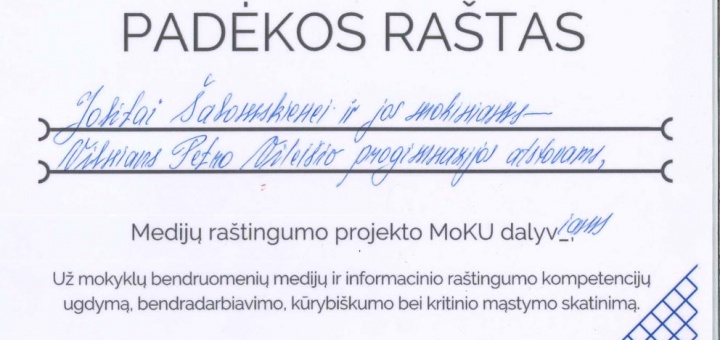 PADĖKOS RAŠTAS
Jolitai Šatomskienei ir jos mokiniams –
Vilniaus Petro Vileišio progimnazijos atstovams,
Medijų raštingumo projekto MoKU dalyv_iams
Už mokyklų bendruomenių medijų ir informacinio raštingumo kompetencijų
ugdymą, bendradarbiavimo, kūrybiškumo bei kritinio mąstymo skatinimą.